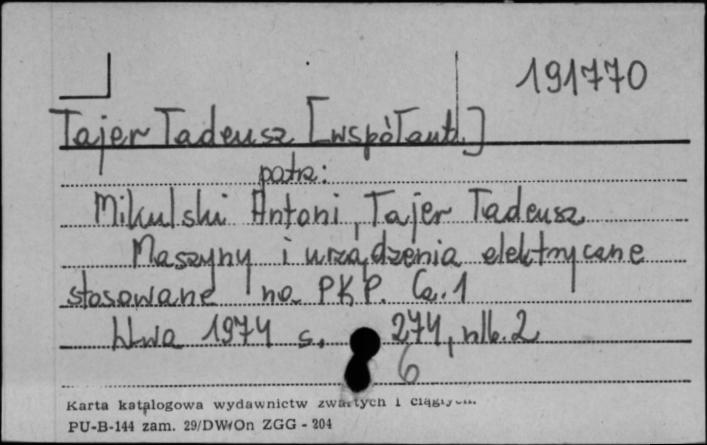 191770
Tajer Tadeusz [współaut.]
patrz:
Mikulski Antoni, Tajer Tadeusz
Maszyny i urządzenia elektryczne
stosowane na PKP. Cz. 1
W-wa 1974 s. 274, nlb. 2
6
Karta katalogowa wydawnictw zwartych i ciągłych.
PU-B-144 zam. 29/DWOn ZGG - 204